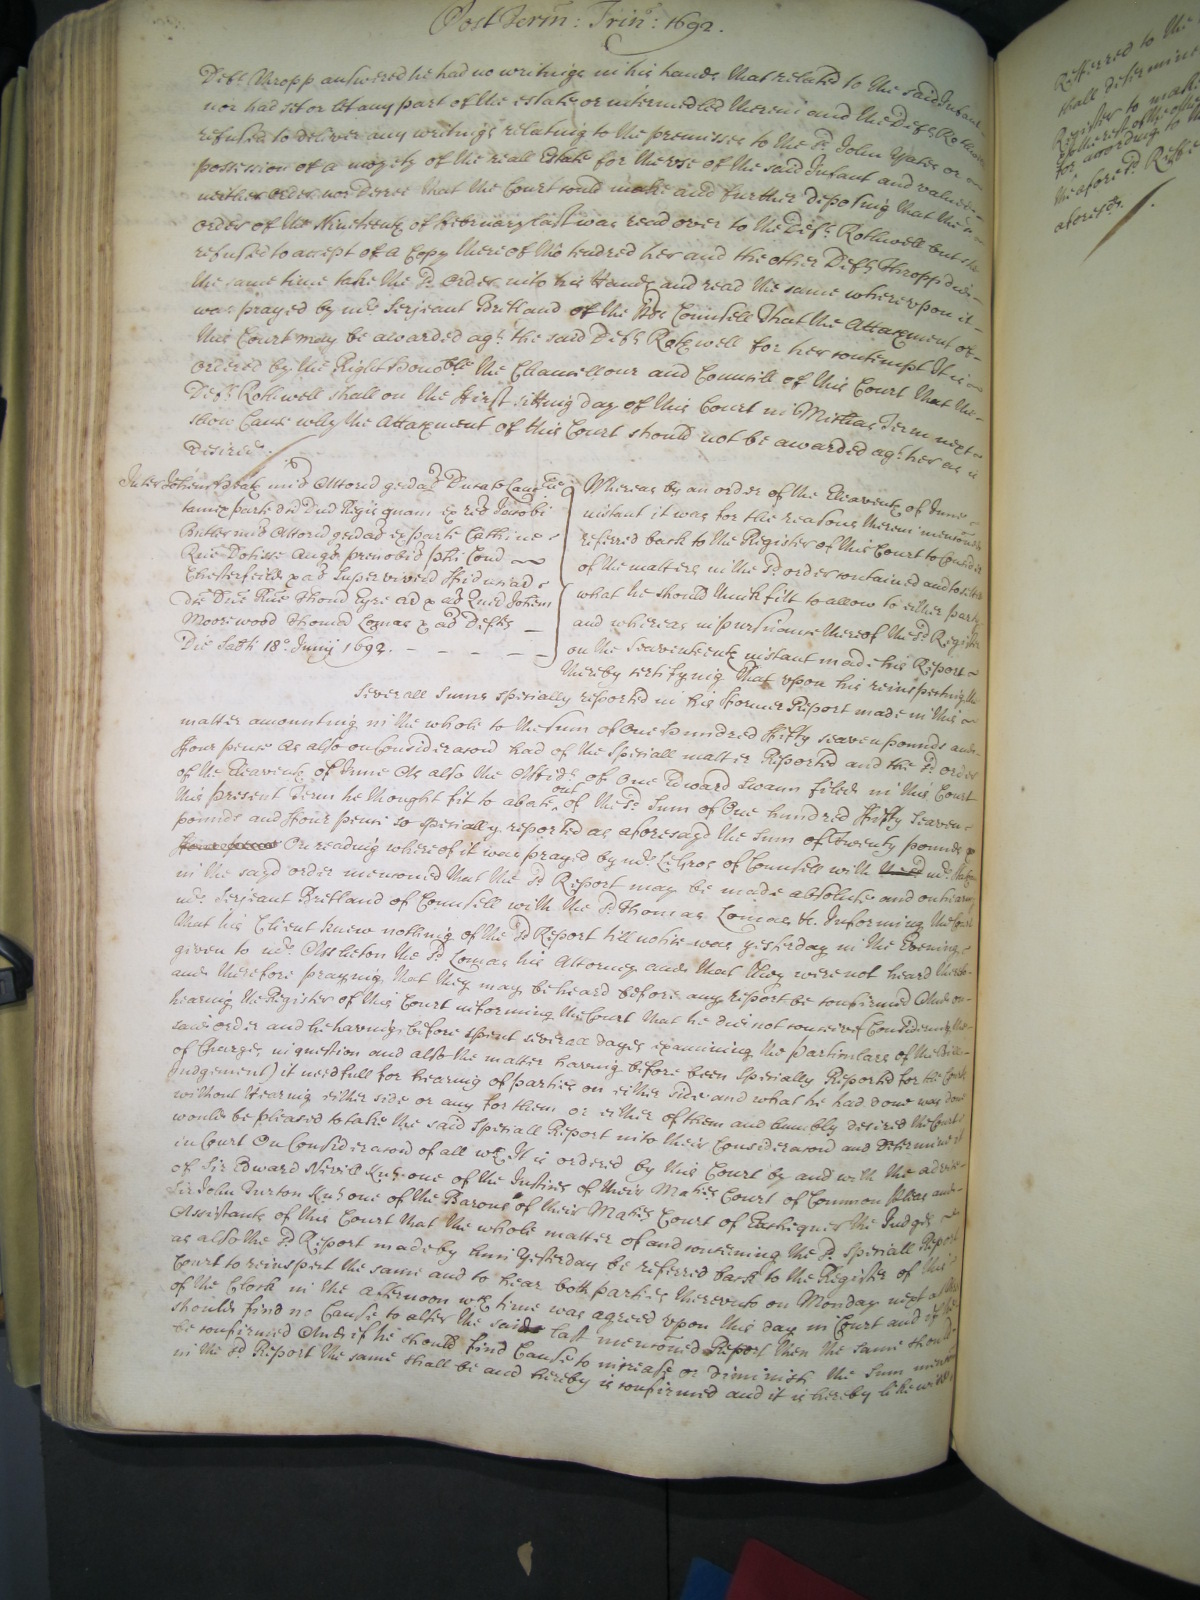 Post Term: Trin: 1692.
Deft Thropp answered he had no writings in his hands that related to the said Infant
nor had set or let any part of the estate or intermedled therein and the Deft Rothwell
refused to deliver any writings relating to the premisses to the sd John Yates or
possession of a moyety of the reall Estate for the use of the said Infant and valued
neither order nor Decree that the Court could make and further deposing that the
order of the Nineteenth of February last was read over to the Deft Rothwell but she
refused to accept of a Copy thereof tho tendred her and the other Deft Thropp did
the same time take the sd order into his Hands and read the same whereupon it
was prayed by mr Serjeant Bretland of the Counsell That the Attachment of
this Court may be awarded agt the said Deft Rothwell for her contempt It is
ordered by the Right Honoble the Chancellour and Councill of this Court that the
Deft Rothwell shall on the First sitting day of this Court in Michas Term next
show Cause why the Attachment of this Court should not be awarded agt her as is
desired.
Inter Johem Heath mil Attorn genal Ducat Lanc
tam ex parte dni Regis quam ex rel Jacobi
Butler mil Attorn genal ex parte Catherine
Rne Dotisse Angl prenobil Phi Com
Chesterfeild x al Supervivend Fiduciar
dce Dne Rne Thom Eyre ar x al Quer Johem
Moorwood Thomam Lomas x al Defts
Die Sabti 18o Junij 1692.
Whereas by an order of the Eleaventh of June
instant it was for the reasons therein menconed
referred back to the Register of this Court to Consider
of the matters in the sd order contained and to
what he should think fitt to allow to either party
and whereas in pursuance thereof the sd Register
on the Seaventeenth instant made his Report
thereby certifying That upon his reinspecting the
severall sums specially reported in his former Report made in this
matter amounting in the whole to the sum of One Hundred Fifty seaven pounds and
Four pence As also on Consideracon had of the speciall matter Reported and the sd order
of the Eleaventh of June As also the Affidt of One Edward Swann filed in this Court
this present Term he thought fit to abate out of the sd Sum of One hundred Fifty Seaven
pounds and Four pence so specially reported as aforesayd the sum of Twenty pounds
On reading whereof it was prayed by mr LeGros of Counsell with mr
in the sayd order menconed that the sd Report may be made absolute and on hearing
mr Serjeant Bretland of Counsell with the sd Thomas Lomas &c. Informing the Court
that his Client knew nothing of the sd Report till notice was yesterday in the Evening
given to mr Assheton the sd Lomas his Attorney and that they were not heard therein
and therefore praying that they may be heard before any report be confirmed And on
hearing the Register of this Court informing the Court that he did not conceive (Considering the
said order and he having before spent severall dayes examining the particulars of the Bill
of Charges in question and also the matter having before been specially Reported for the Courts
Judgement) it needfull for hearing of parties on either side and what he had done was done
without Hearing either side or any for them or either of them and humbly desired the Court
would be pleased to take the said Speciall Report into their Consideracon and determine it
in Court On Consideracon of all wch It is ordered by this Court by and with the advice
of Sir Edward Nevill Knt one of the Justices of their Maties Court of Common Pleas and
Sir John Turton Knt one of the Barons of their Maties Court of Exchequer the Judges
Assistants of this Court that the whole matter of and concerning the sd Speciall Report
as also the sd Report made by him yesterday be referred back to the Register of this
Court to reinspect the same and to hear both parties thereunto on Monday next at
of the Clock in the afternoon wch time was agreed upon this day in Court and if he
should find no Cause to alter the said last menconed Report then the same should
be confirmed And if he should find Cause to increase or diminish the Sum menconed
in the sd Report the same shall be and hereby is confirmed and it is hereby likewise
Referred to the
shall determine
Register to make
for according to the
the afore sd Regr
aforesd.